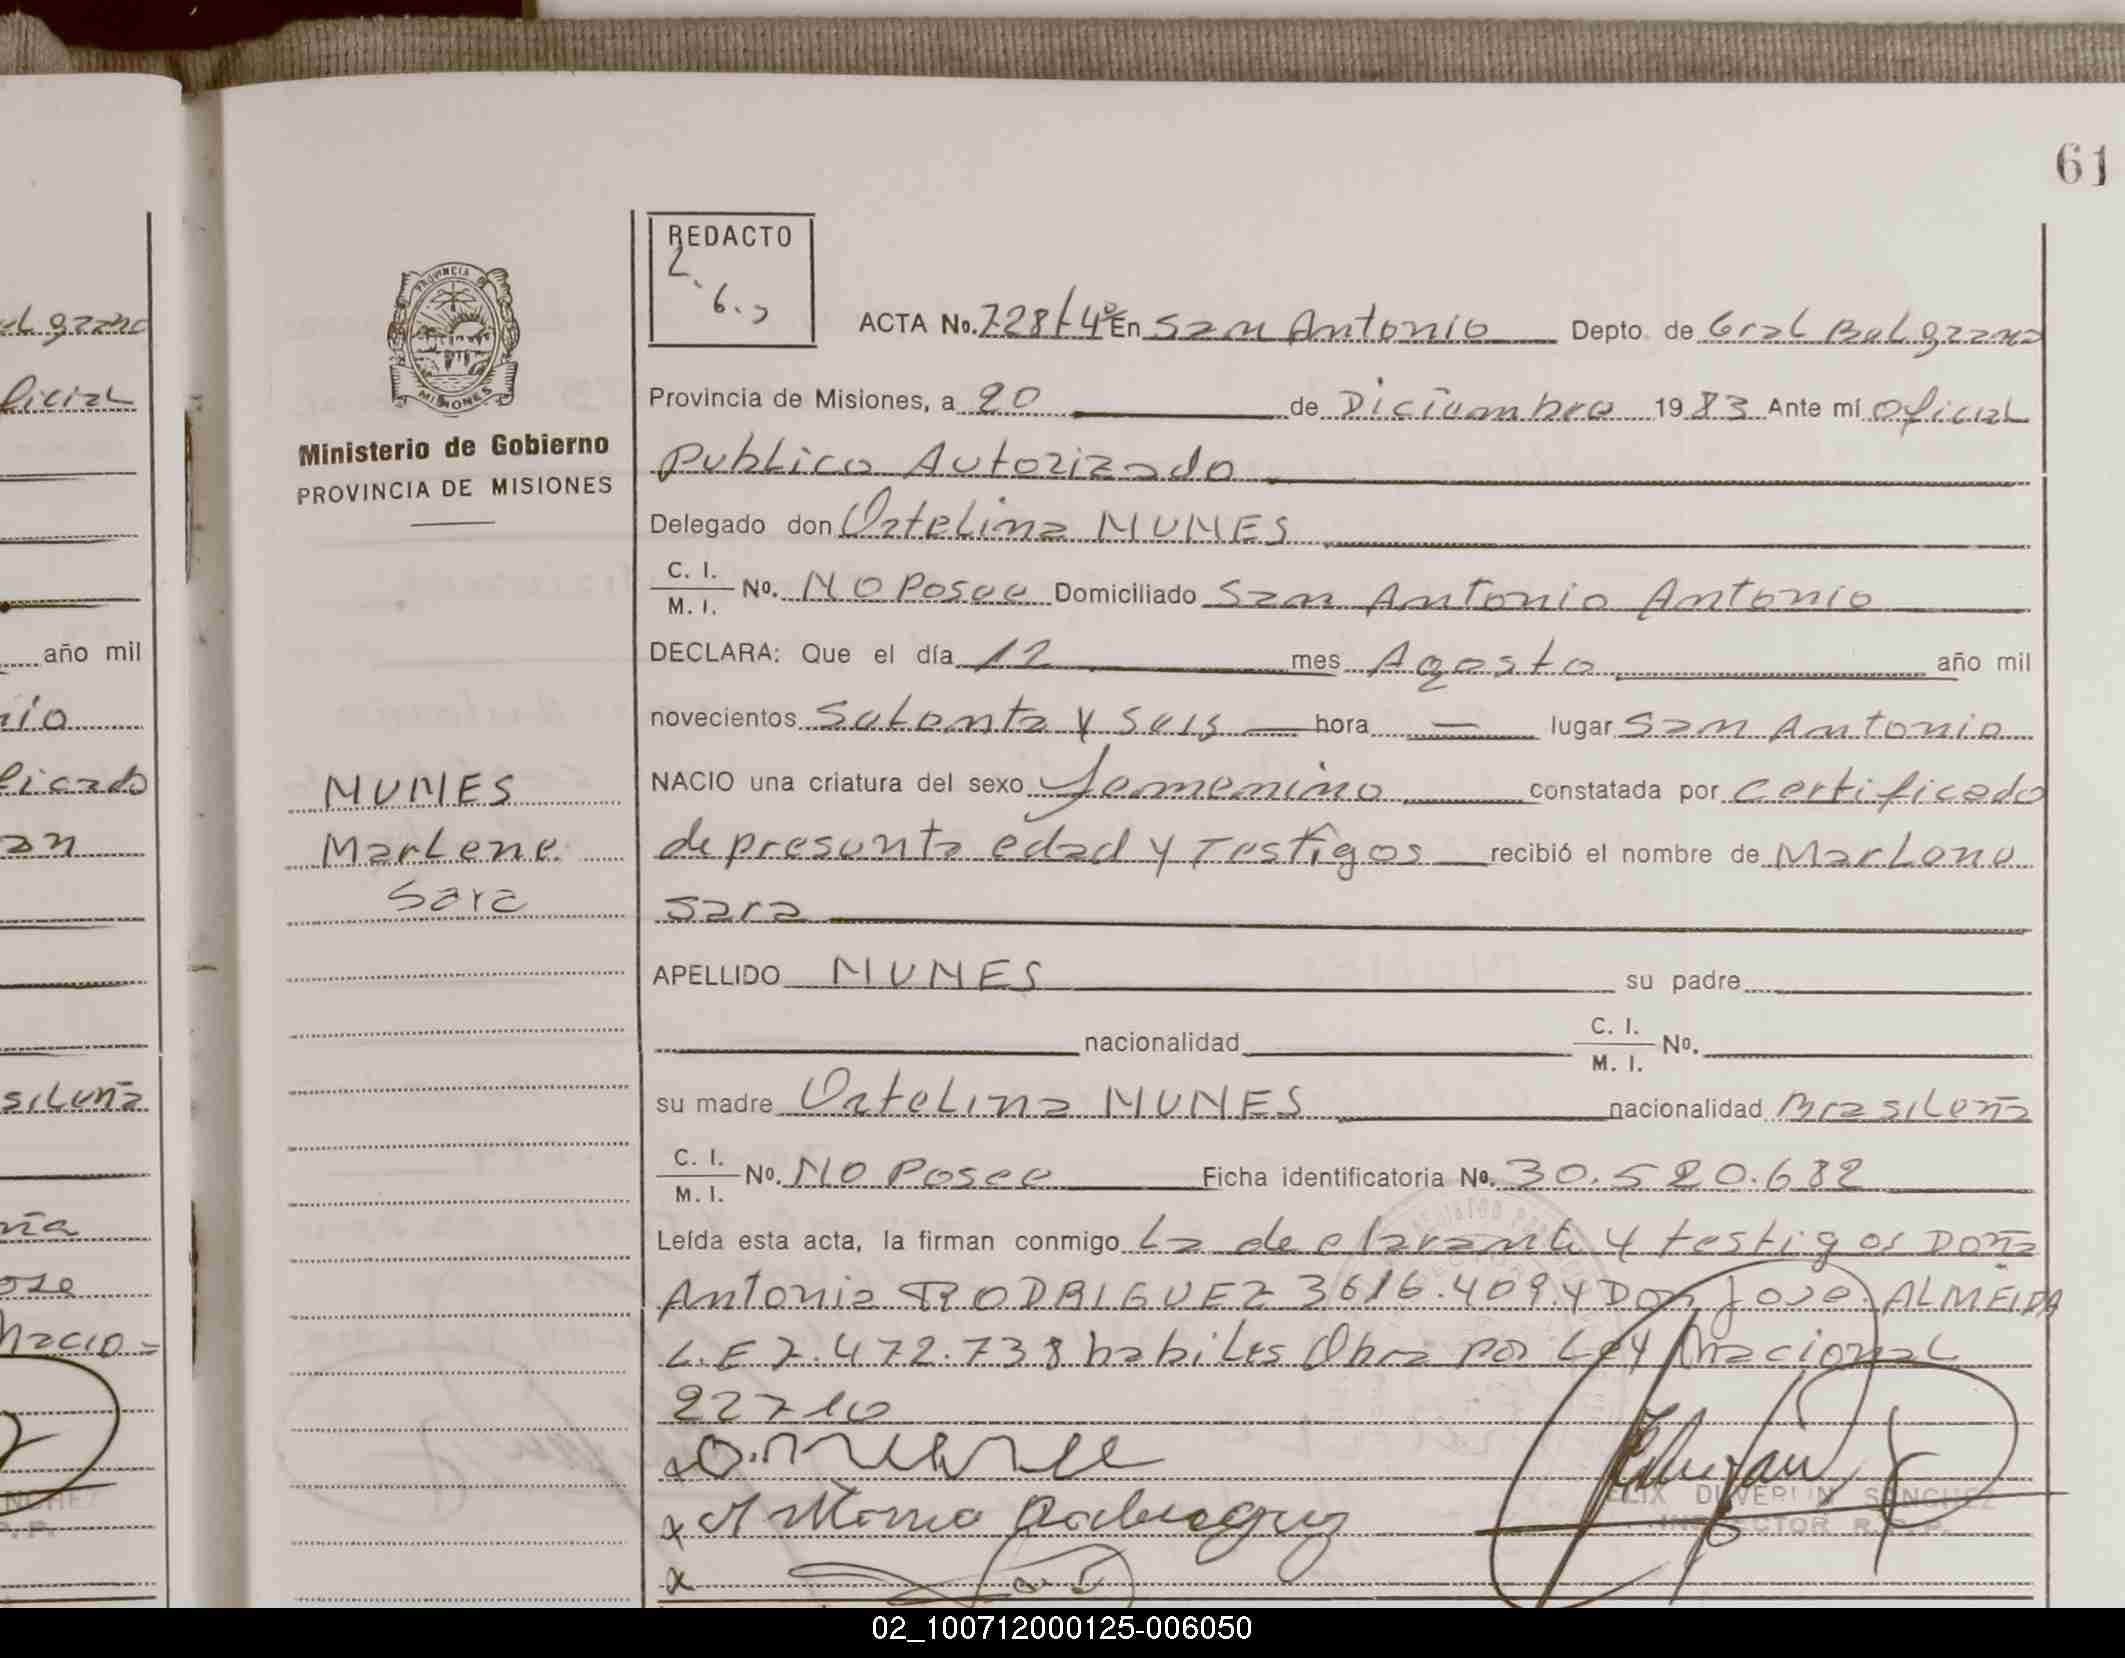 61
REDACTO
ACTA No. 728 T 4º En San Antonio Depto. de Gral Belgrano
Provincia de Misiones, a 20 de Diciembre 1983 Ante mí Oficial
Publico Autorizado
Delegado don Ortelina NUNES
C. I.
M. I. No. No Posee Domiciliado San Antonio Antonio
DECLARA: Que el día 12 mes Agosto año mil
novecientos Setenta y Seis hora — lugar San Antonio
NACIO una criatura del sexo femenino constatada por certificado
de presunta edad y Testigos recibió el nombre de Marlene
Sara
APELLIDO NUNES su padre
nacionalidad C. I.
M. I. No.
su madre Ortelina NUNES nacionalidad Brasileña
C. I.
M. I. No. No Posee Ficha identificatoria No. 30.520.682
Leída esta acta, la firman conmigo La declarante y testigos Doña
Antonia RODRIGUEZ 3616.409 y Don Jose ALMEIDA
L.E 7.472.738 habiles Obra por Ley Nacional
22710
x O. nunes
x Antonia Rodriguez
x
FELIX DUVERLIN SANCHEZ
INSPECTOR R.P.P.
PROVINCIA DE
MISIONES
Ministerio de Gobierno
PROVINCIA DE MISIONES
NUNES
Marlene
Sara
elgrano
ficial
año mil
nio
ficado
an
sileña
ña
ose
Nacio=
02_100712000125-006050